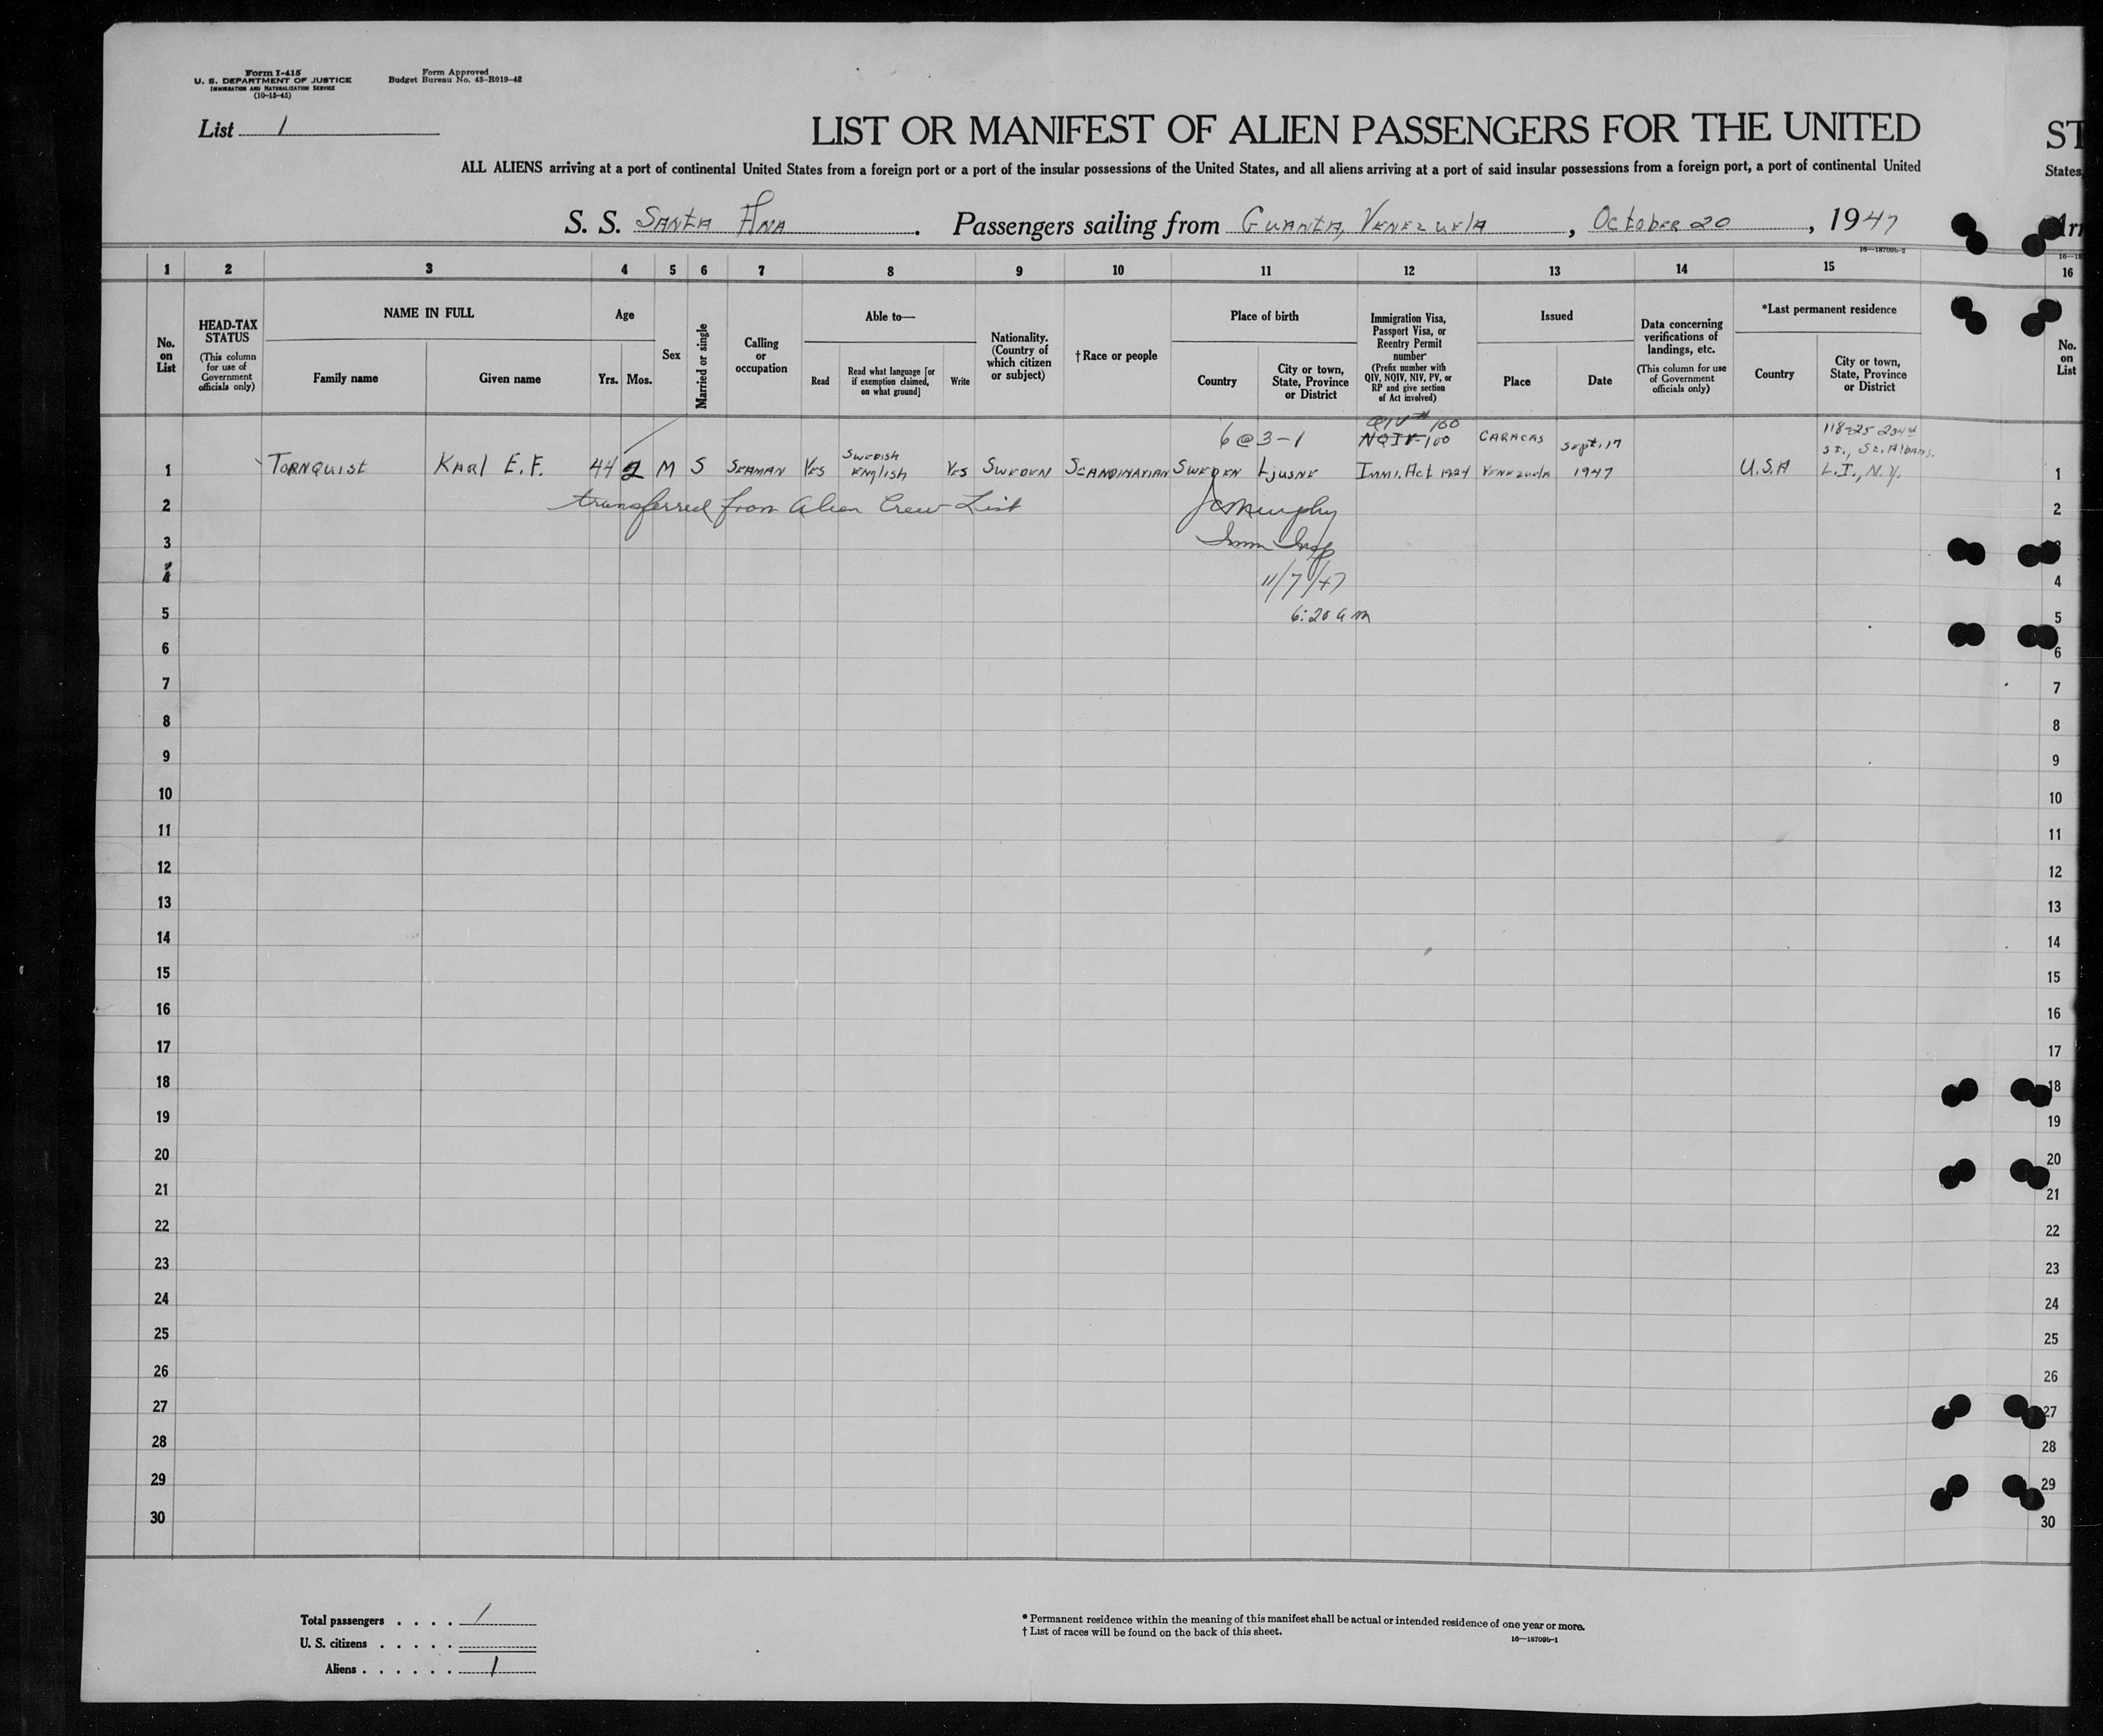 Form I-415
U. S. DEPARTMENT OF JUSTICE
IMMIGRATION AND NATURALIZATION SERVICE
(10-15-45)
Form Approved
Budget Bureau No. 43-R019-42
List 1
LIST OR MANIFEST OF ALIEN PASSENGERS FOR THE UNITED
ST
ALL ALIENS arriving at a port of continental United States from a foreign port or a port of the insular possessions of the United States, and all aliens arriving at a port of said insular possessions from a foreign port, a port of continental United
States,
S. S. SANTA ANA . Passengers sailing from GUANTA, VENEZUELA , OCTOBER 20 , 1947
Arr
16—18709b-2
16—18
1 2 3 4 5 6 7 8 9 10 11 12 13 14 15 16
No. on List
HEAD-TAX STATUS
(This column for use of Government officials only)
NAME IN FULL
Family name
Given name
Age
Yrs. Mos.
Sex
Married or single
Calling or occupation
Able to—
Read
Read what language [or if exemption claimed, on what ground]
Write
Nationality. (Country of which citizen or subject)
† Race or people
Place of birth
Country
City or town, State, Province or District
Immigration Visa, Passport Visa, or Reentry Permit number
(Prefix number with QIV, NQIV, NIV, PV, or RP and give section of Act involved)
Issued
Place
Date
Data concerning verifications of landings, etc.
(This column for use of Government officials only)
*Last permanent residence
Country
City or town, State, Province or District
No. on List
6@3-1
QIV # 100
NQIV-100 CARACAS Sept. 17 118-25 204th
ST., ST. Albans,
1 TORNQUIST KARL E. F. 44 2 M S SEAMAN YES SWEDISH ENGLISH YES SWEDEN SCANDINAVIAN SWEDEN LJUSNE IMMI. Act 1924 VENEZUELA 1947 U.S.A L.I., N.Y. 1
2 transferred from Alien Crew List JC Murphy 2
3 Imm Insp 3
4 11/7/47 4
5 6:20 am 5
6 6
7 7
8 8
9 9
10 10
11 11
12 12
13 13
14 14
15 15
16 16
17 17
18 18
19 19
20 20
21 21
22 22
23 23
24 24
25 25
26 26
27 27
28 28
29 29
30 30
Total passengers . . . . 1
U. S. citizens . . . . .
Aliens . . . . . . 1
* Permanent residence within the meaning of this manifest shall be actual or intended residence of one year or more.
† List of races will be found on the back of this sheet.
16—18709b-1